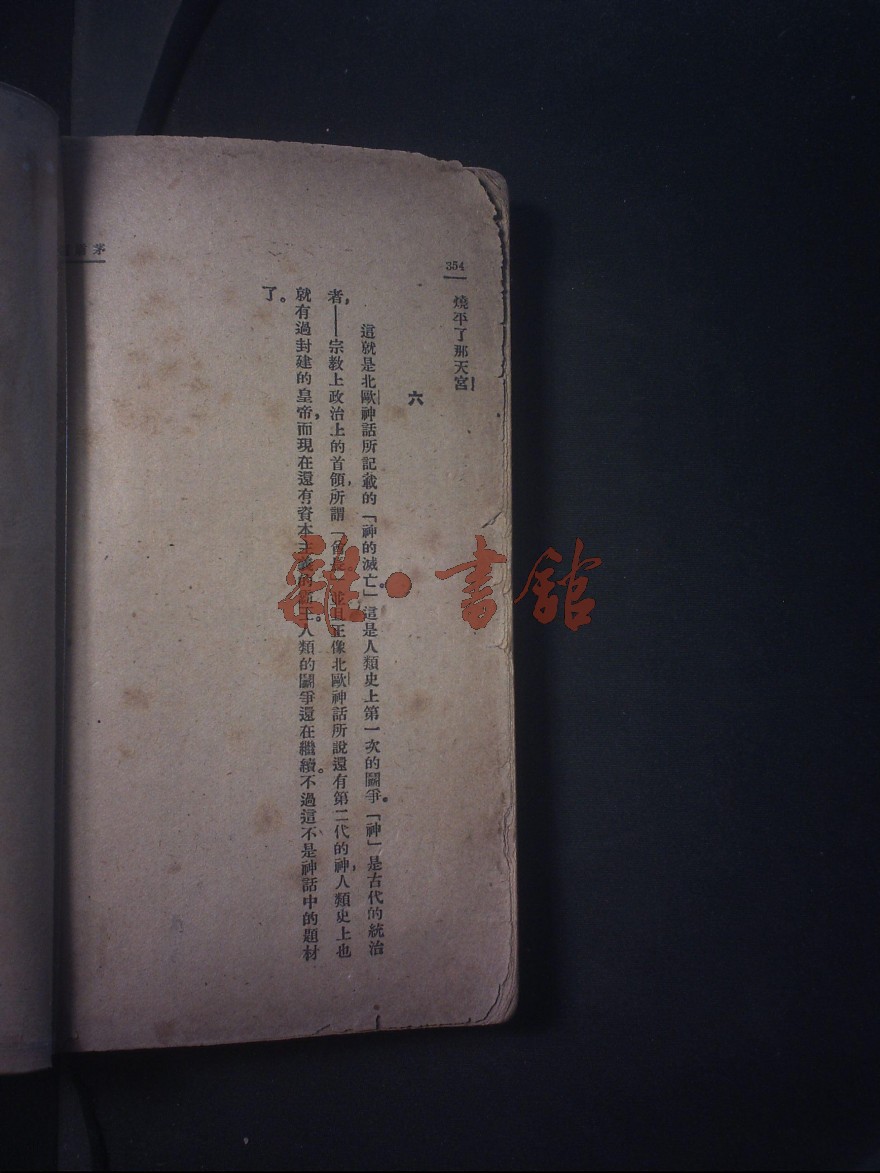 354
燒平了那天宮
六
這就是北歐神話所記載的「神的滅亡。」這是人類史上第一次的鬭爭。「神」是古代的統治
者，——宗教上政治上的首領，所謂「酋長。」並且正像北歐神話所說還有第二代的神，人類史上也
就有過封建的皇帝，而現在還有資本主義的。人類的鬭爭還在繼續。不過這不是神話中的題材
了。
茅
雜·書館